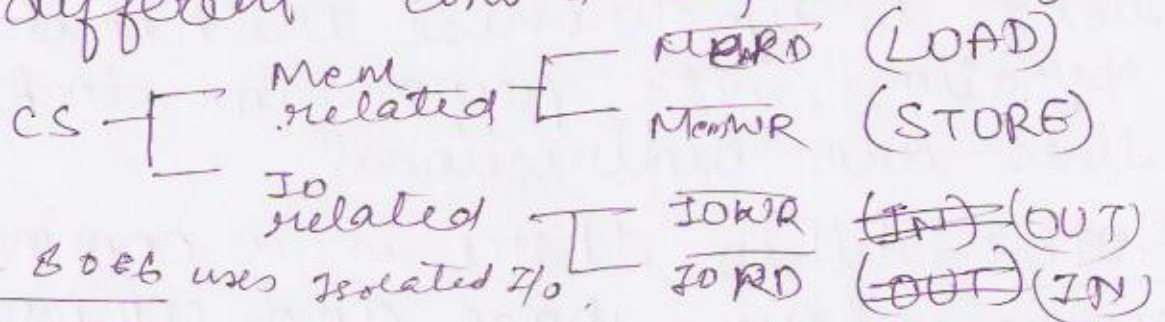 different
CS Mem related MemRD (LOAD)
MemWR (STORE)
IO related IOWR (IN) (OUT)
8086 uses Isolated I/O. IORD (OUT) (IN)